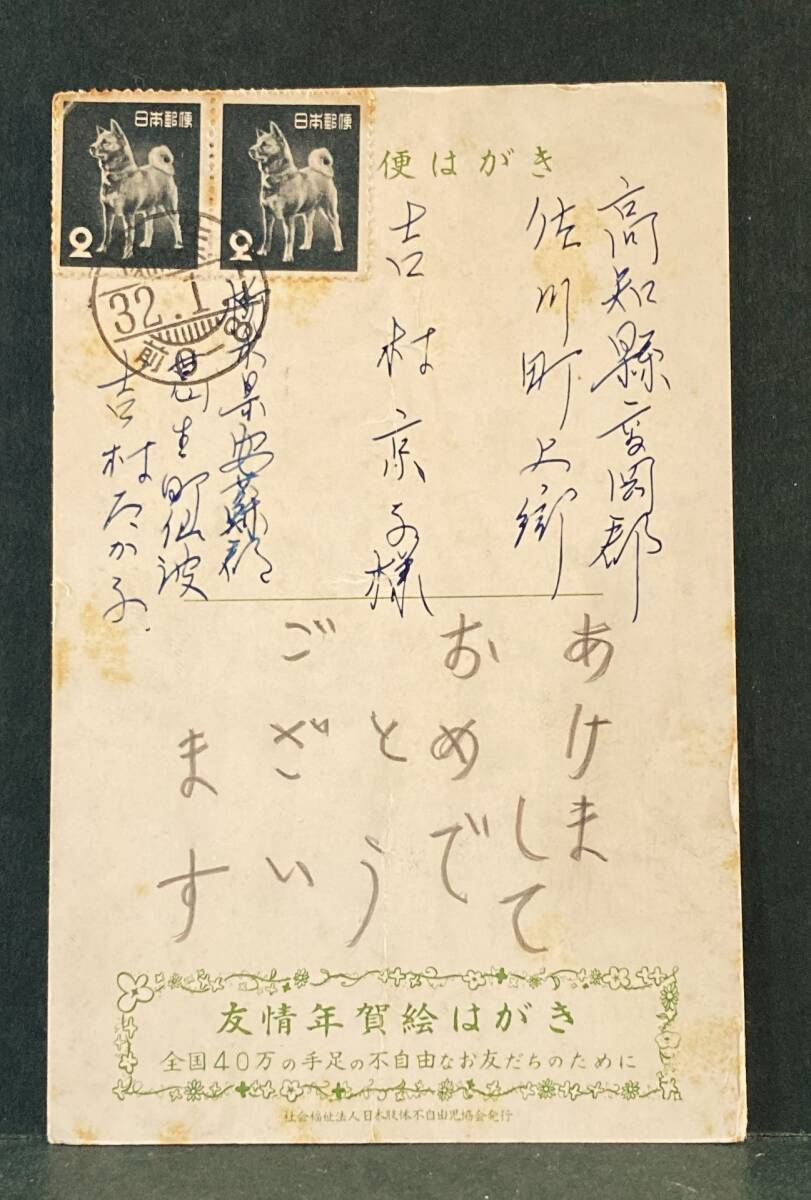 日本郵便
2
日本郵便
2
便はがき
32.1
前
高知縣高岡郡
佐川町上郷
吉村京子様
栃木県安蘇郡
葛生町仙波
吉村たか子
あけま
して
おめで
とう
ござい
ます
友情年賀絵はがき
全国40万の手足の不自由なお友だちのために
社会福祉法人日本肢体不自由児協会発行